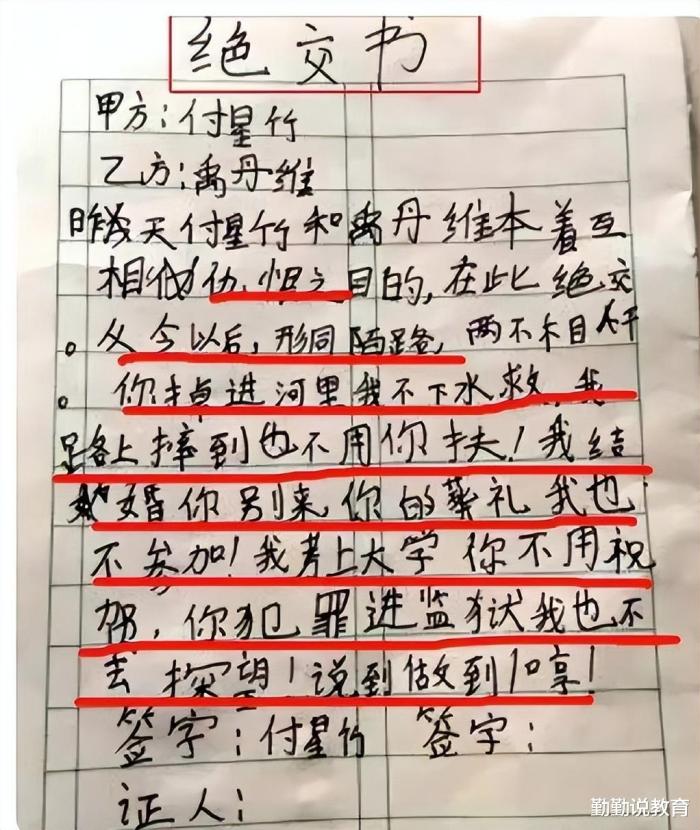 绝交书
甲方:付星竹
乙方:禹丹维
昨天付星竹和禹丹维本着互
相仇恨之目的,在此绝交
。从今以后,形同陌路,两不相干
。你掉进河里我不下水救,我
路上摔到也不用你扶!我结
婚你别来你的葬礼我也
不参加!我考上大学你不用祝
贺,你犯罪进监狱我也不
去探望!说到做到!哼!
签字:付星竹 签字:
证人:
勤勤说教育